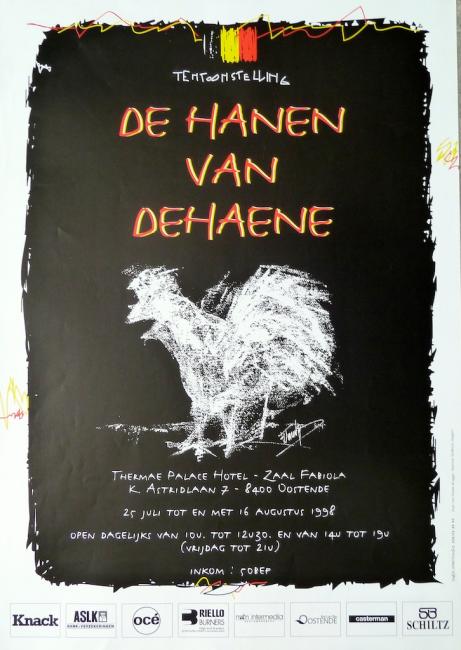 TENTOONSTELLING
DE HANEN
VAN
DEHAENE
THERMAE PALACE HOTEL - ZAAL FABIOLA
K. ASTRIDLAAN 7 - 8400 OOSTENDE
25 JULI TOT EN MET 16 AUGUSTUS 1998
OPEN DAGELIJKS VAN 10U. TOT 12U30. EN VAN 14U TOT 19U
(VRIJDAG TOT 21U)
INKOM : 50BEF
Knack
ASLK
BANK & VERZEKERINGEN
océ
RIELLO
BURNERS
intermedia
OOSTENDE
casterman
SCHILTZ